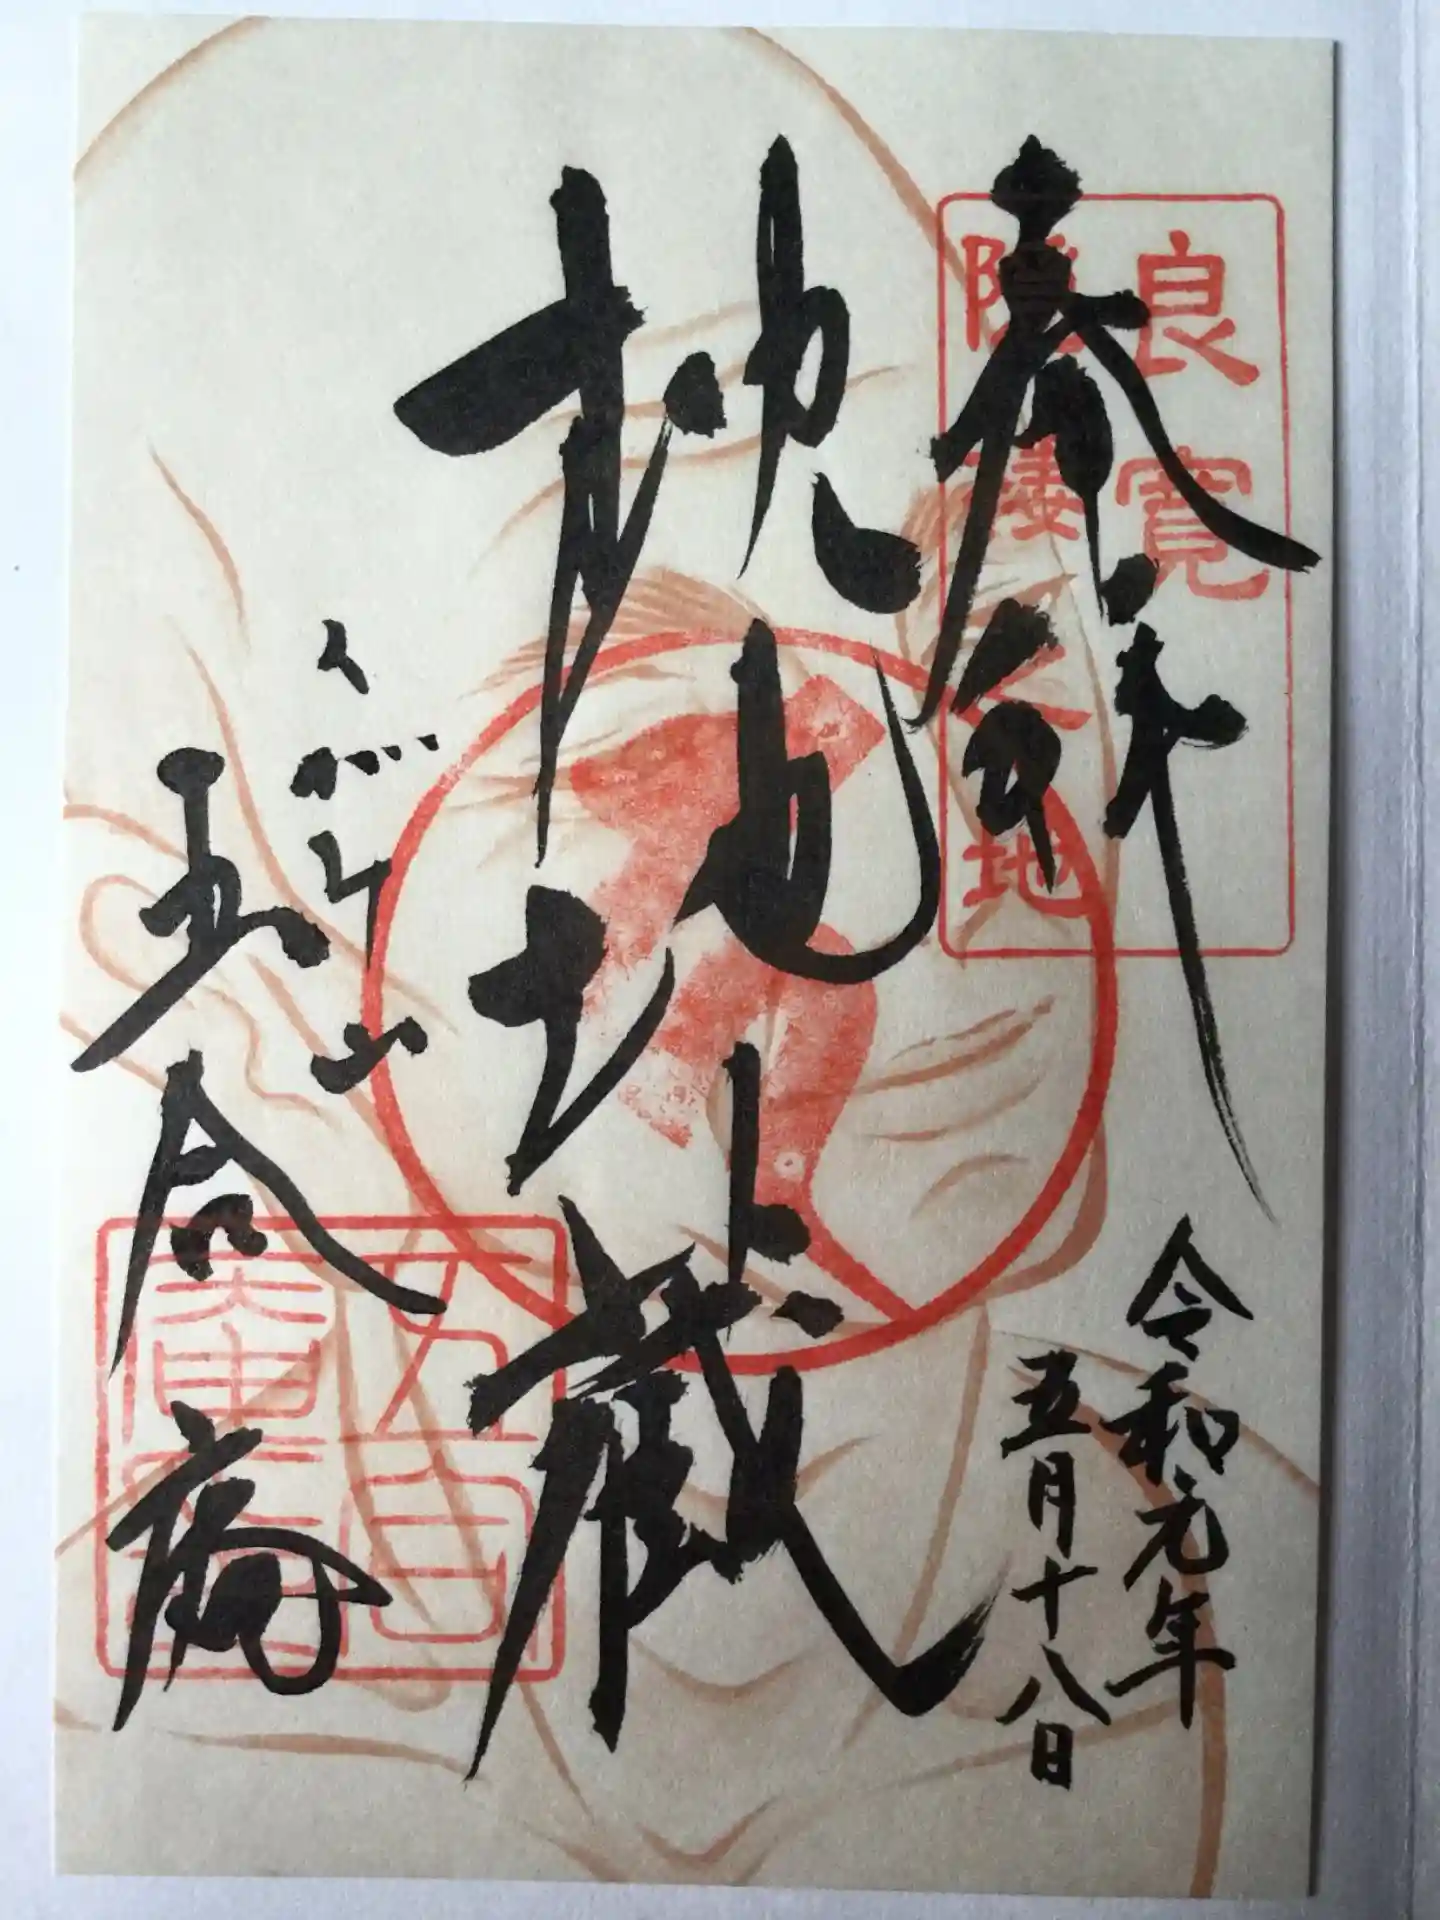 奉拝
良寛
隠棲之地
令和元年
五月十八日
枕地蔵
くがみ山
五合庵